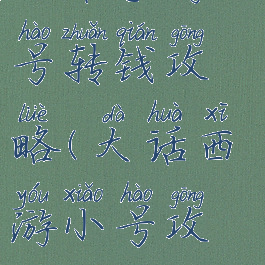 hào zhuǎn qián gōng
号转钱攻
lüè dà huà xī
略(大话西
yóu xiǎo hào gōng
游小号攻